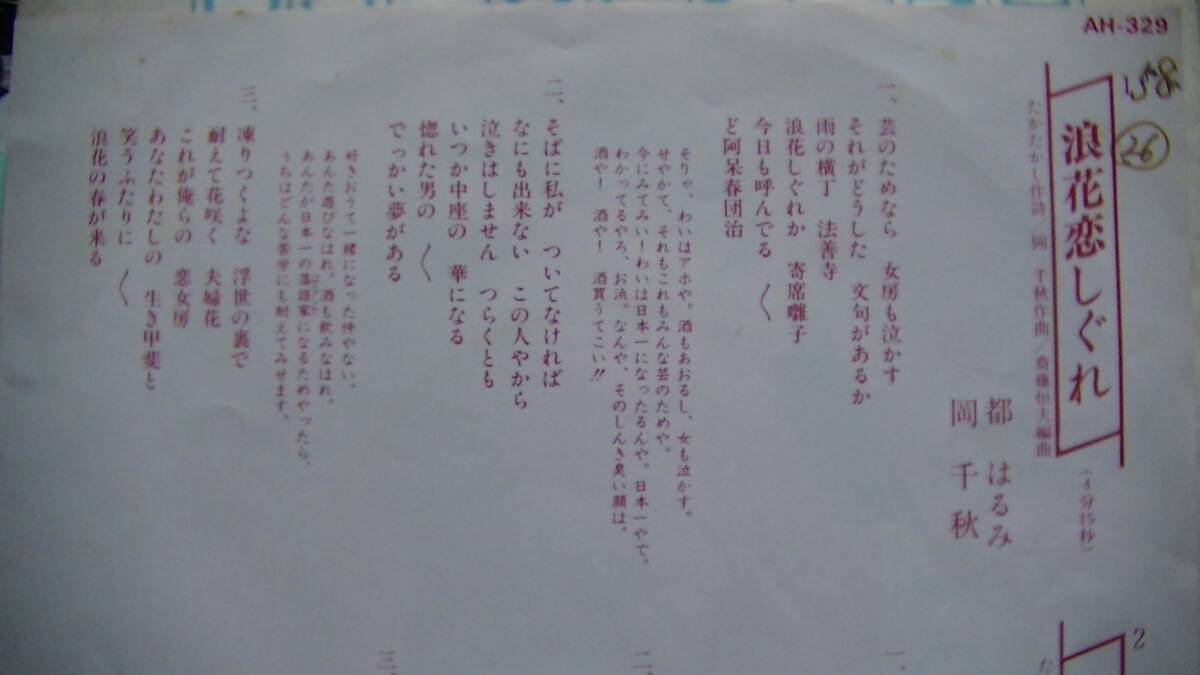 AH-329
158
26
浪花恋しぐれ
(4分15秒)
たかたかし作詩/岡 千秋作曲/斎藤恒夫編曲
都 はるみ
岡 千秋
一、芸のためなら 女房も泣かす
それがどうした 文句があるか
雨の横丁 法善寺
浪花しぐれか 寄席囃子
今日も呼んでる 〳〵
ど阿呆春団治
そりゃ、わいはアホや。酒もあおるし、女も泣かす。
せやかて、それもこれもみんな芸のためや。
今にみてみい!わいは日本一になったるんや。日本一やで。
わかってるやろ、お浜。なんや、そのしんき臭い顔は。
酒や! 酒や! 酒買うてこい!!
二、そばに私が ついてなければ
なにも出来ない この人やから
泣きはしません つらくとも
いつか中座の 華になる
惚れた男の 〳〵
でっかい夢がある
好きおうて一緒になった仲やない。
あんた遊びなはれ、酒も飲みなはれ。
あんたが日本一の落語家になるためやったら、
うちはどんな苦労にも耐えてみせます。
三、凍りつくよな 浮世の裏で
耐えて花咲く 夫婦花
これが俺らの 恋女房
あなたわたしの 生き甲斐と
笑うふたりに 〳〵
浪花の春が来る
2
た
一、
二、
三、